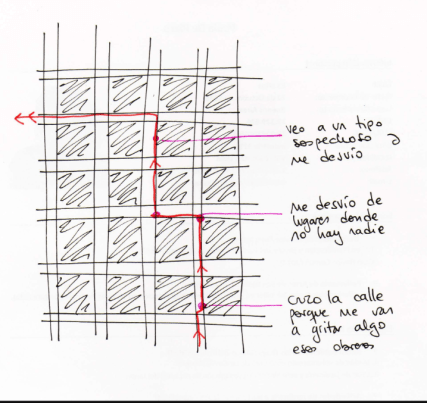 veo a un tipo
sospechoso y
me desvío
me desvío de
lugares donde
no hay nadie
cruzo la calle
porque me van
a gritar algo
esos obreros